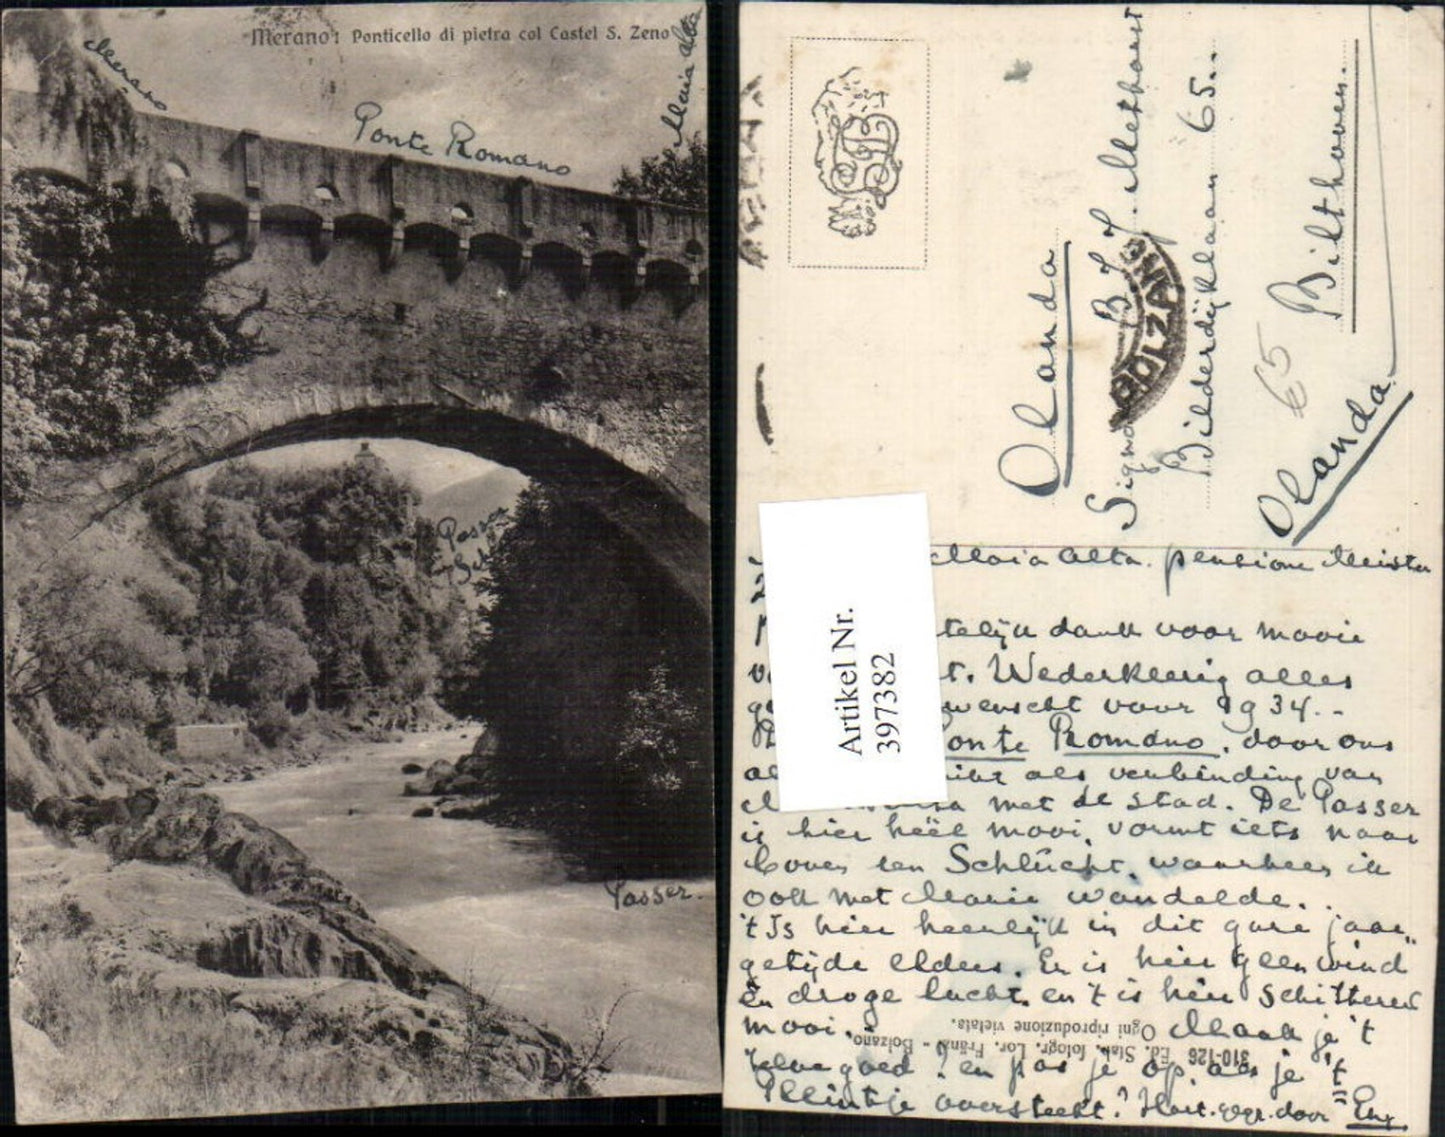 Merano: Ponticello di pietra col Castel S. Zeno
Merano
Maia Alta
Ponte Romano
Passer
Passer.
Olanda
Signa B. J. J. Methorst
Bilderdijklaan 65..
Bilthoven.
Olanda.
65
BOLZANO
Maia Alta. pensione Meister
telijk dank voor mooie
t. Wederkeerig alles
gewenscht voor 1934..
Ponte Romano, door ons
als verbinding van
met de stad. De Passer
is hier héél mooi, vormt iets naar
boven een Schlücht, waarheen ik
ook met Marie wandelde..
't Is hier heerlijk in dit gure jaar„
getijde elders. Er is hier geen wind
en droge lucht. en 't is hier schitterend
mooi. Maak je 't
goed? en pas je op als je 't
Pleintje oversteekt? Hart. gr. door
310-126 Ed. Stab. fotogr. Lor. Fränzl - Bolzano
Ogni riproduzione vietata.
Artikel Nr.
397382